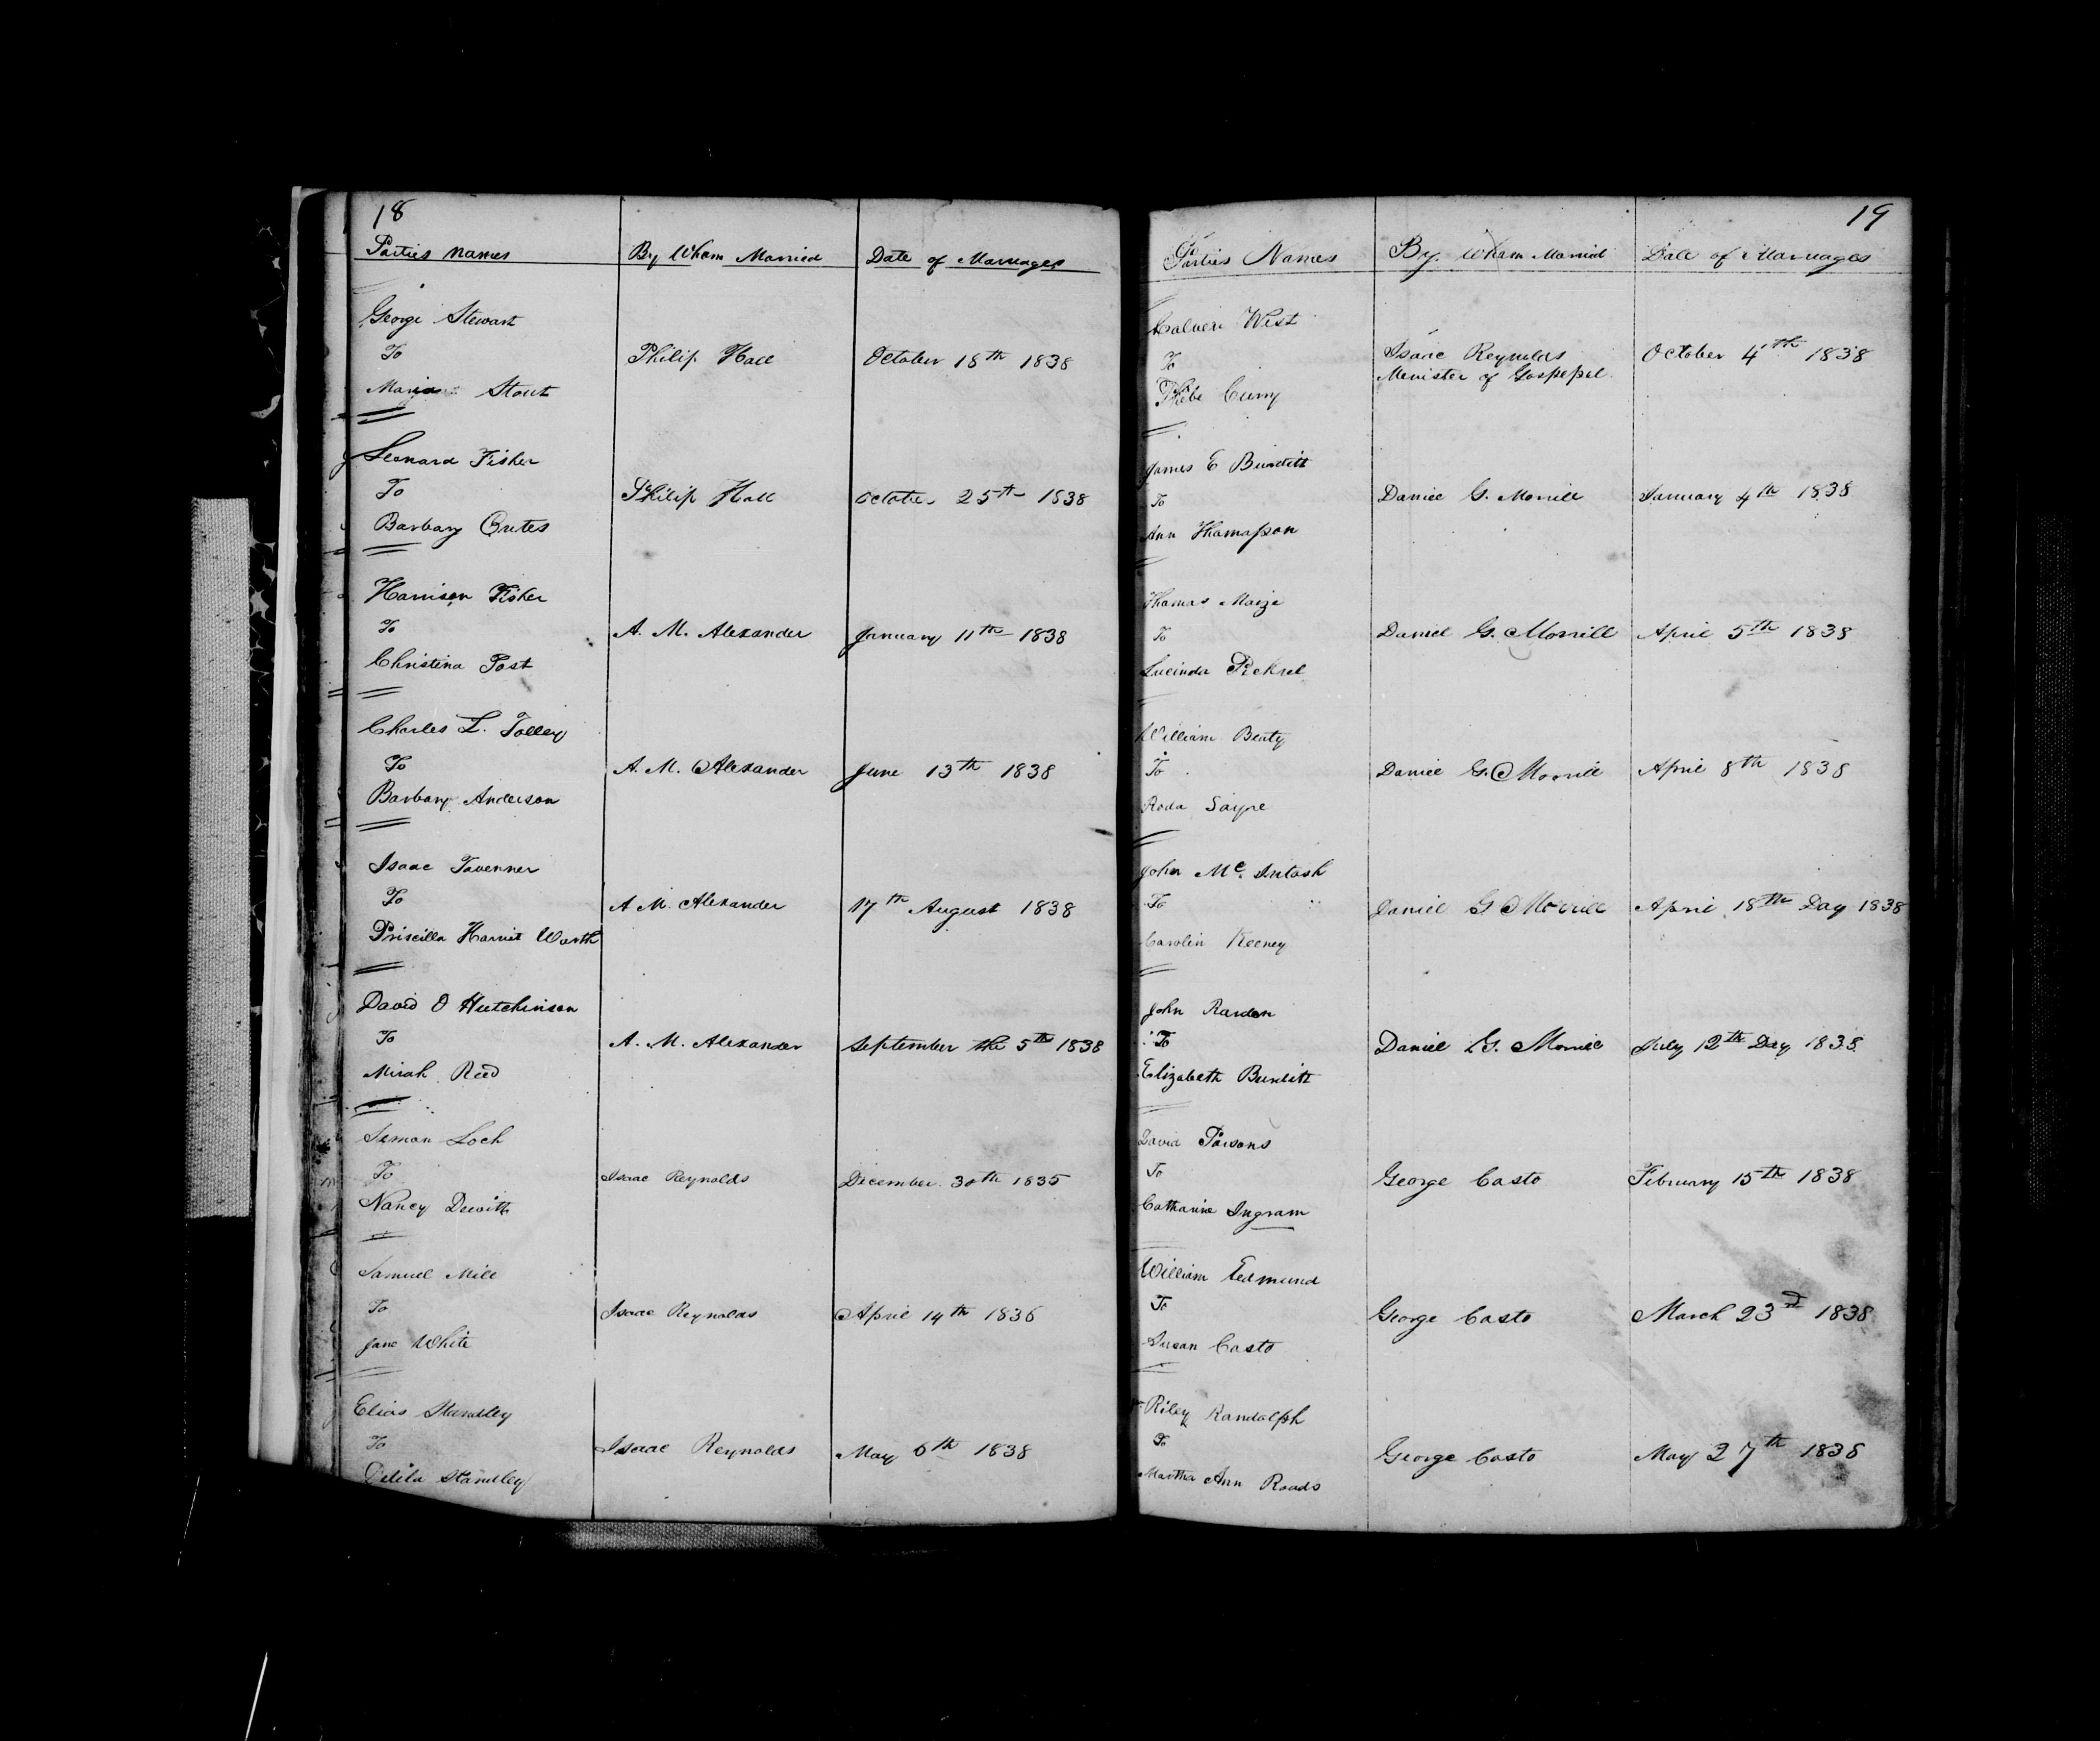 18
Parties Names By Wham Married Date of Marriages
George Stewart
To Philip Hall October 18th 1838
Stout
Leonard Fisher
To Philip Hall October 25th 1838
Barbary Crites
Harrison Fisher
To A. M. Alexander January 11th 1838
Christina Post
Charles L. Tolley
To A. M. Alexander June 13th 1838
Barbary Anderson
Isaac Tavenner
To A M. Alexander 17th August 1838
Priscilla Harriet Worth
David O Hutchinson
To A. M. Alexander September the 5th 1838
Mirah Reed
Simon Loch
To Isaac Reynolds December 30th 1835
Nancy Dewitt
Samuel Mill
To Isaac Reynolds April 14th 1836
Jane White
Elias Standley
To Isaac Reynolds May 6th 1838
Delila Standley
19
Parties Names By Wham Married Date of Marriages
West
To Isaac Reynolds October 4th 1838
Phebe Curry Menister of Gospepel
James E
To Daniel G. Morrill January 4th 1838
Ann Thomasson
Thamas Maize
To Daniel G. Morrill April 5th 1838
Lucinda Pickrel
William Beaty
To Daniel G. Morrill April 8th 1838
Roda Sayre
John Mc. Intash
To Daniel G Morrill April 18th Day 1838
Carolin Keeney
John Rardon
To Daniel G. Morrill July 12th Day 1838
Elizabeth
David Parsons
To George Casto February 15th 1838
Catharine Ingram
William Eedmund
To George Casto March 23rd 1838
Susan Casto
Riley Randolph
To George Casto May 27th 1838
Martha Ann Roads